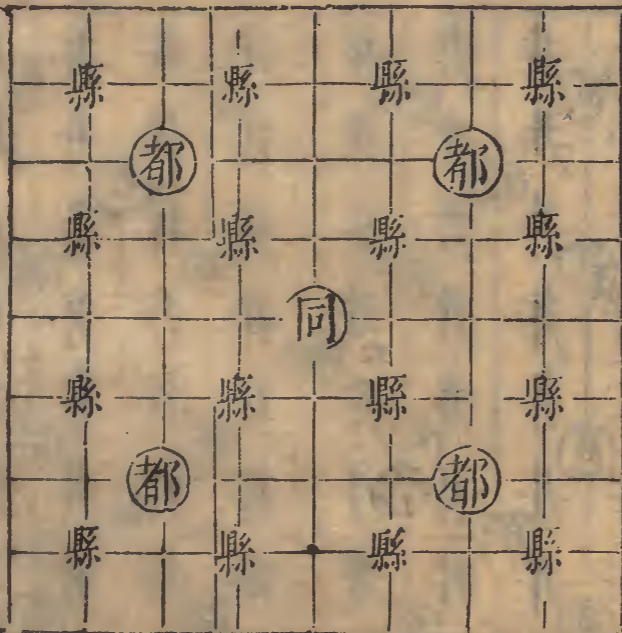 縣 縣 縣 縣
都 都
縣 縣 縣 縣
同
縣 縣 縣 縣
都 都
縣 縣 縣 縣